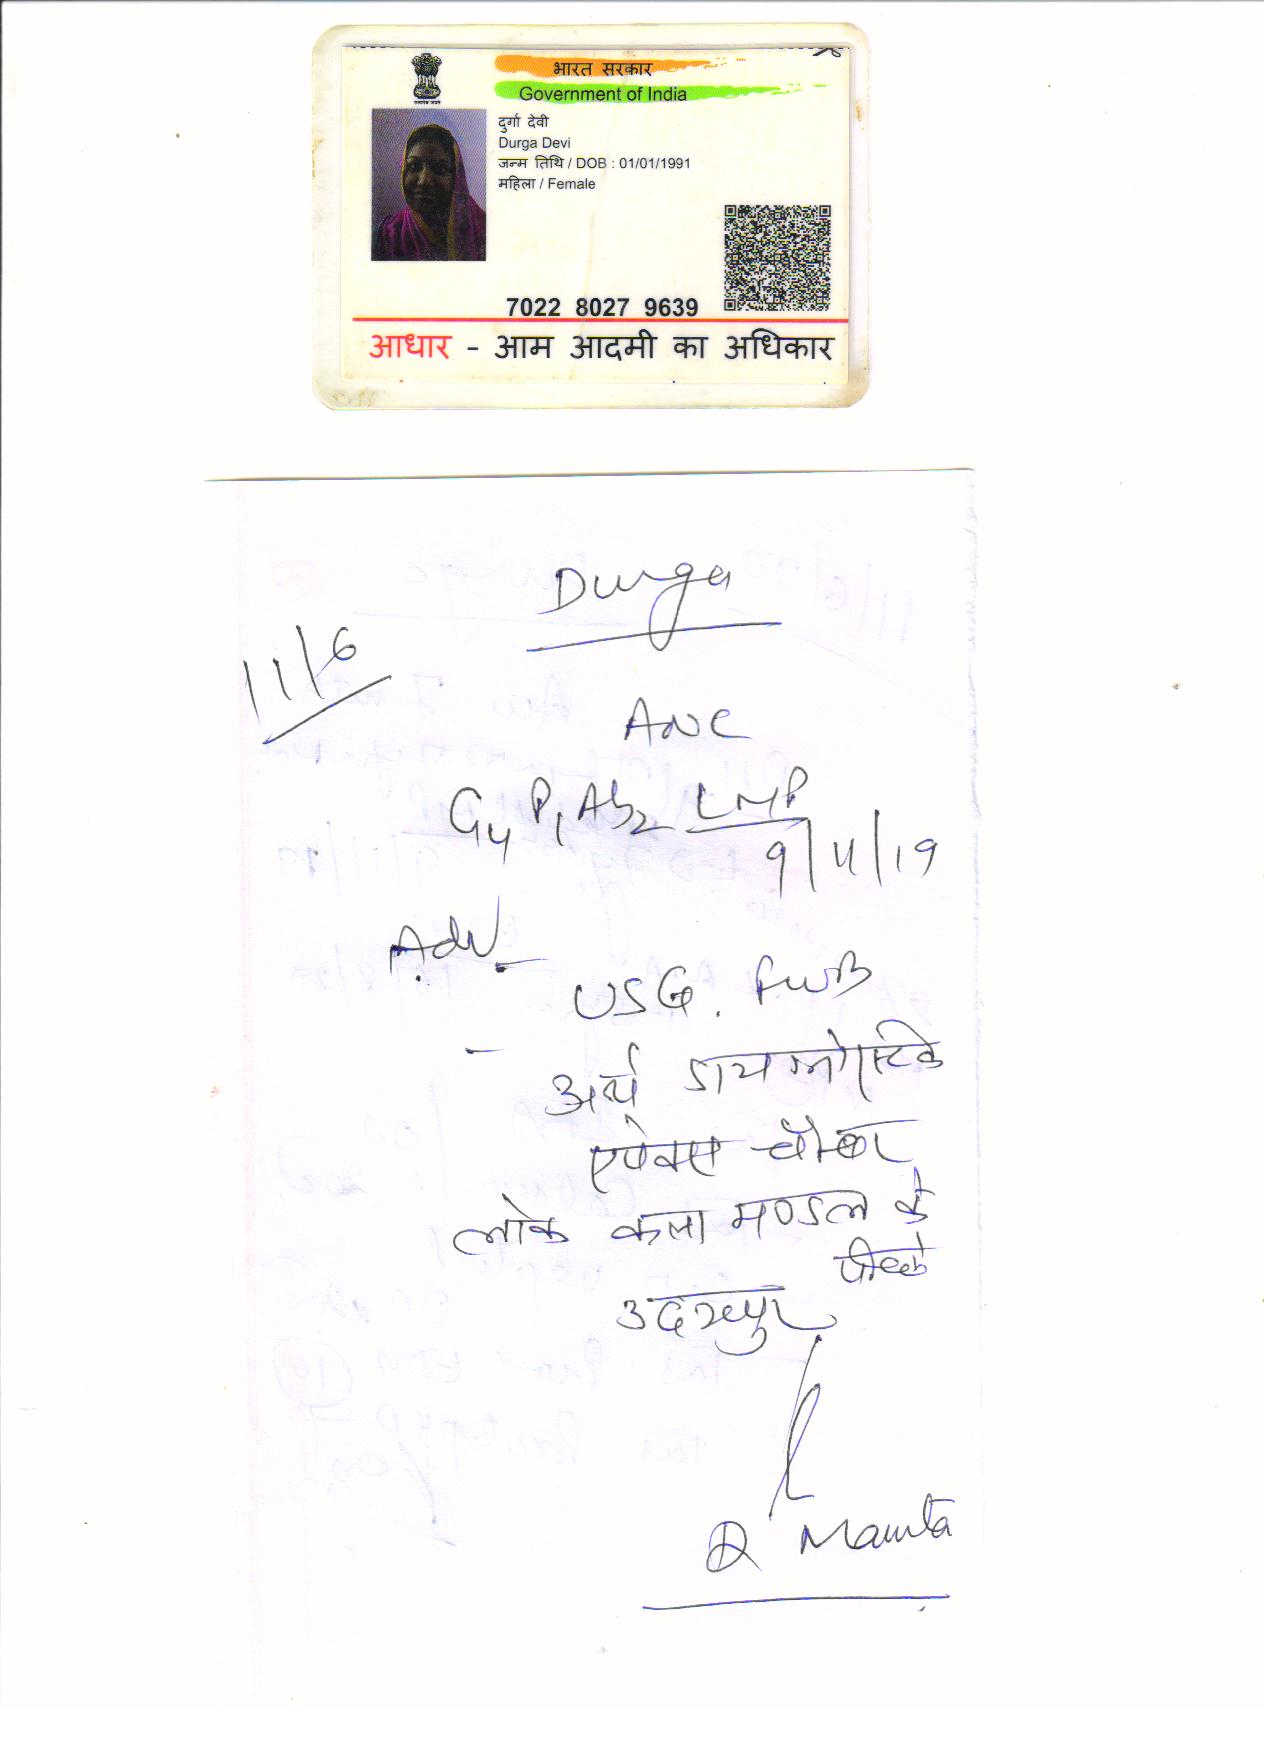 भारत सरकार
Government of India
दुर्गा देवी
Durga Devi
जन्म तिथि / DOB : 01/01/1991
महिला / Female
7022 8027 9639
आधार - आम आदमी का अधिकार
Durga
11/6
ANC
G4 P1 Ab2 LMP
9/11/19
Adv.
USG. FWB
- अर्थ डायग्नोस्टिक
एपेक्स चैम्बर
लोक कला मण्डल के
पीछे
उदयपुर
Dr Mamta